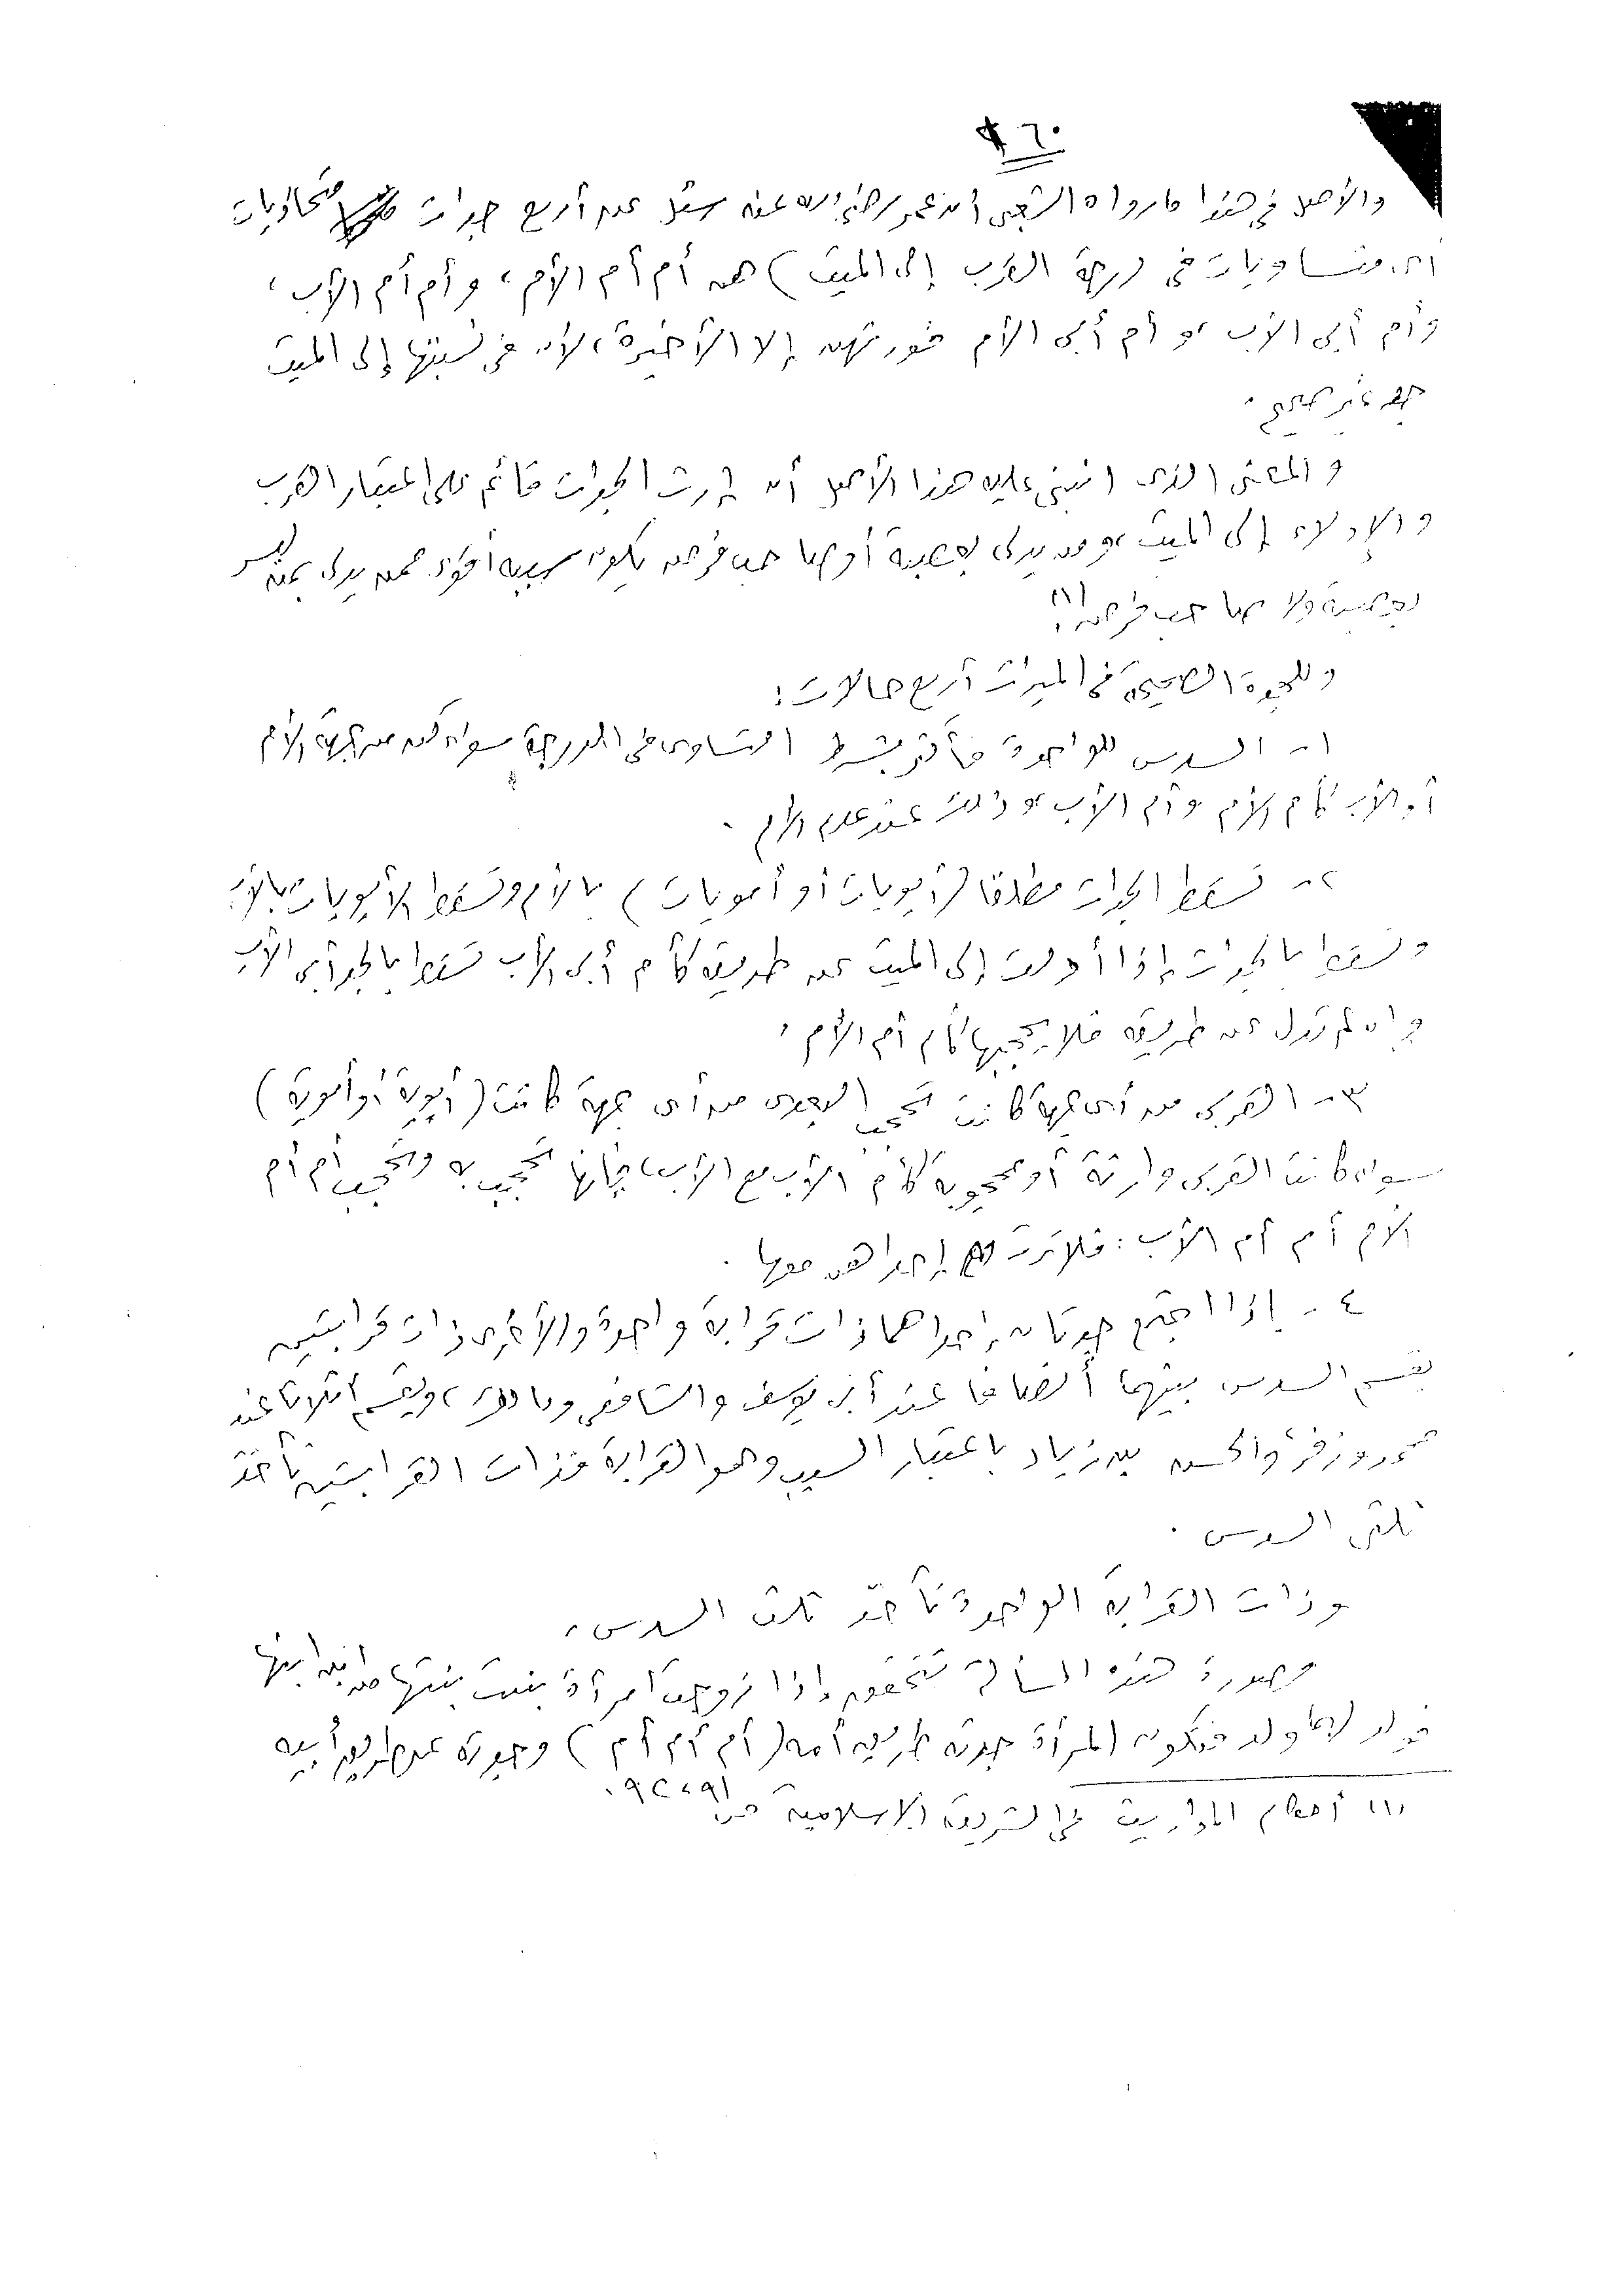 ٦٠
والأصل في هذا ما رواه الشعبى أن عمر رضى الله عنه سئل عن أربع جدات متحاذيات
أى متساويات فى درجة القرب إلى الميت) هن أم أم الأم، وأم أم الأب،
وأم أبى الأب، وأم أبى الأم فورثهن إلا الأخيرة، لأن فى نسبتها إلى الميت
جد غير صحيح.
والمعنى الذى انبنى عليه هذا الأصل أن إرث الجدات قائم على اعتبار القرب
والإدلاء إلى الميت، ومن يدلى بعصبة أو صاحب فرض يكون سببه أقوى ممن يدلى بمن ليس
بعصبة ولا صاحب فرض (١)
وللجدة الصحيحة فى الميراث أربع حالات:
١- السدس للواحدة فأكثر بشرط التساوى فى الدرجة سواء كن من جهة الأم
أو الأب كأم الأم وأم الأب، وذلك عند عدم الأم.
٢- تسقط الجدات مطلقا (أبويات أو أمويات) بالأم وتسقط الأبويات بالأب
وتسقط بالجدات إذا أدلت إلى الميت عن طريقه كأم أبى الأب تسقط بالجد أبى الأب
وإن لم تدل عن طريقه فلا يحجبها كأم أم الأم.
٣- القربى من أى جهة كانت تحجب البعدى من أى جهة كانت (أبوية أو أموية)
سواء كانت القربى وارثة أو محجوبة كأم الأب مع الأب، فإنها تحجب به وتحجب أم أم
الأم أم أم الأب: فلا ترث إحداهن معها.
٤- إذا اجتمع جدتان إحداهما ذات قرابة واحدة والأخرى ذات قرابتين
يقسم السدس بينهما أنصافا عند أبى يوسف والشافعى ومالك، ويقسم أثلاثا عند
محمد وزفر والحسن بن زياد باعتبار السبب وهو القرابة فذات القرابتين تأخذ
ثلثى السدس.
وذات القرابة الواحدة تأخذ ثلث السدس،
وصورة هذه المسألة تتحقق إذا زوجت امرأة بنت بنتها من ابن ابنها
فولد لهما ولد فتكون المرأة جدته طريق أمه (أم أم أم) وجدته عن طريق أبيه
(١) أحكام المواريث فى الشريعة الإسلامية ص ٩١، ٩٢.